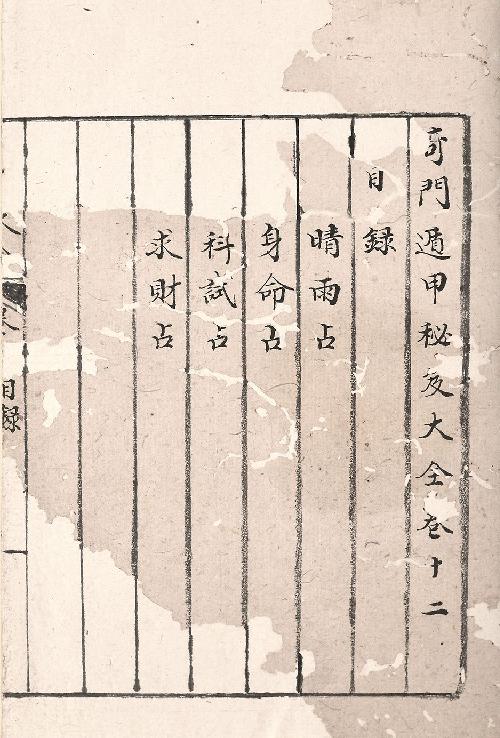 奇門遁甲秘笈大全卷十二
目録
晴雨占
身命占
科試占
求財占
目録